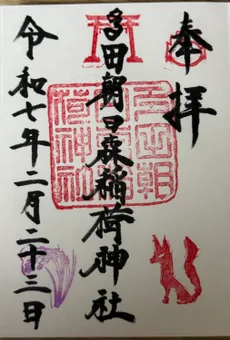 奉拝
多田朝日森稲荷神社
令和七年二月二十三日